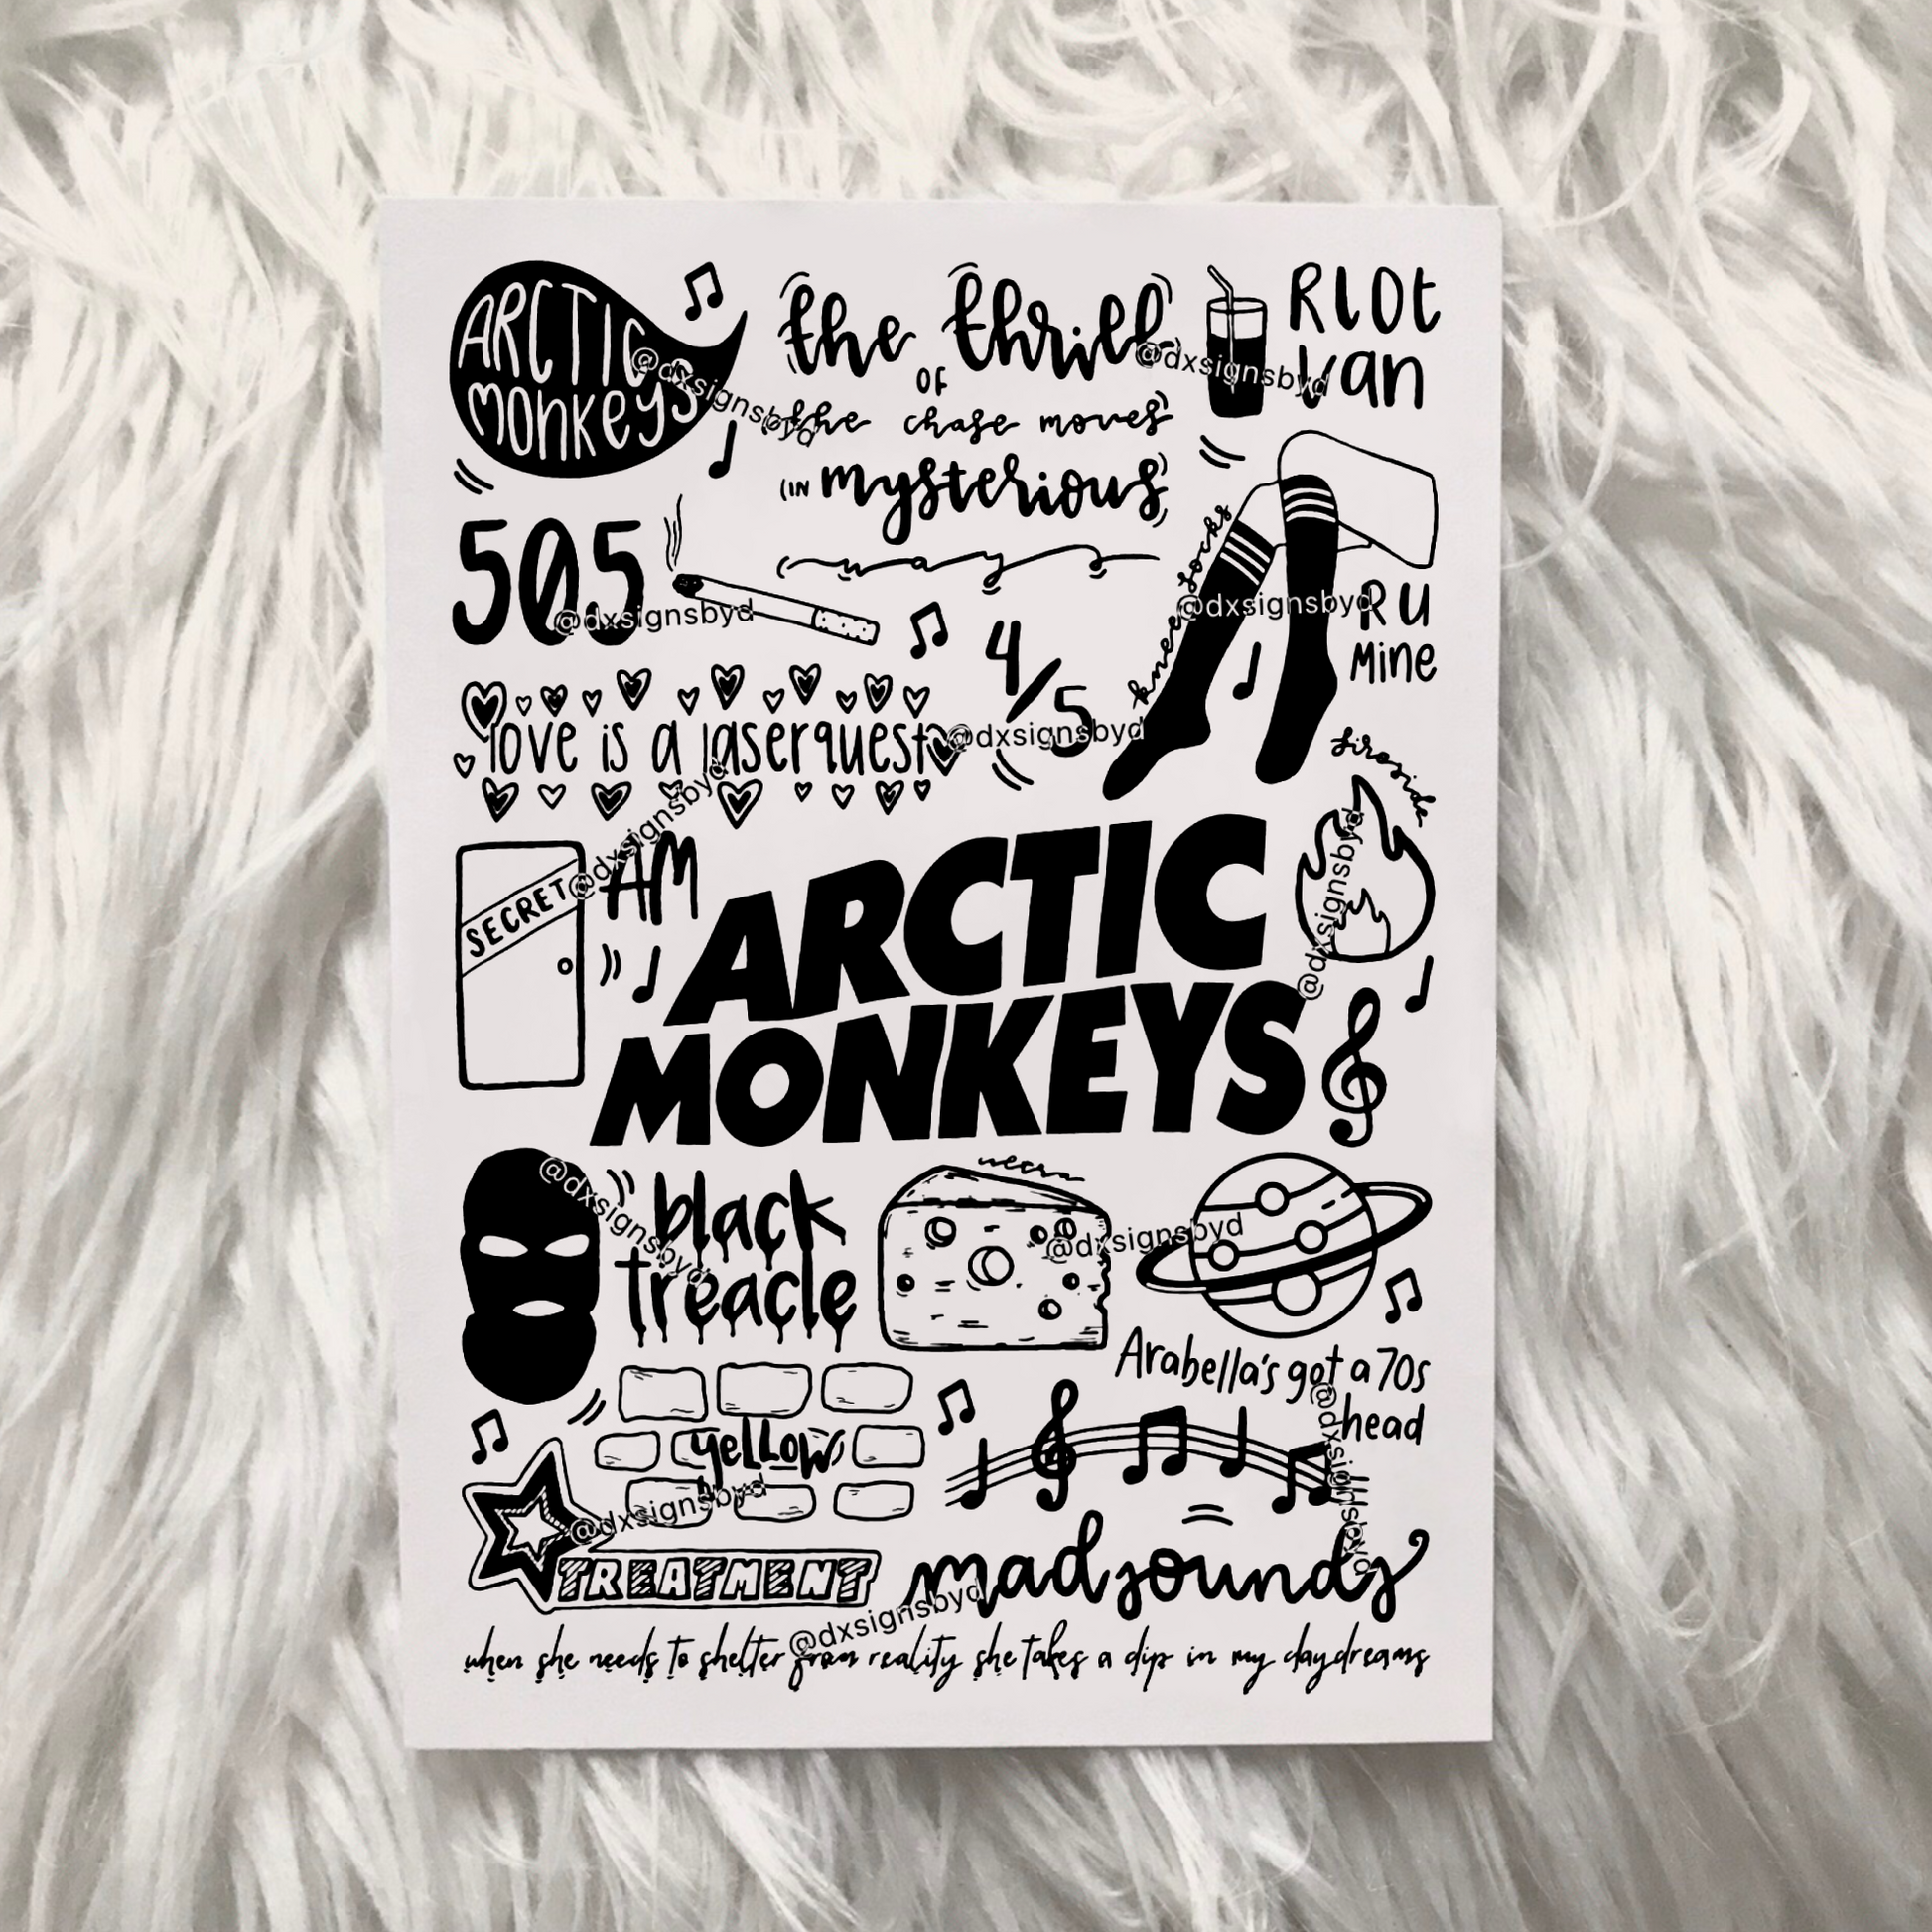 ARCTIC
monkeys
the thrill
OF
the chase moves
IN mysterious
ways
RIOt
Van
505
knee socks
R U
Mine
4/5
love is a laserquest
fireside
SECRET
AM
ARCTIC
MONKEYS
black
treacle
Arabella's got a 70s
head
yellow
TREATMENT
mad sounds
when she needs to shelter from reality she takes a dip in my daydreams
@dxsignsbyd
@dxsignsbyd
@dxsignsbyd
@dxsignsbyd
@dxsignsbyd
@dxsignsbyd
@dxsignsbyd
@dxsignsbyd
@dxsignsbyd
@dxsignsbyd
@dxsignsbyd
@dxsignsbyd